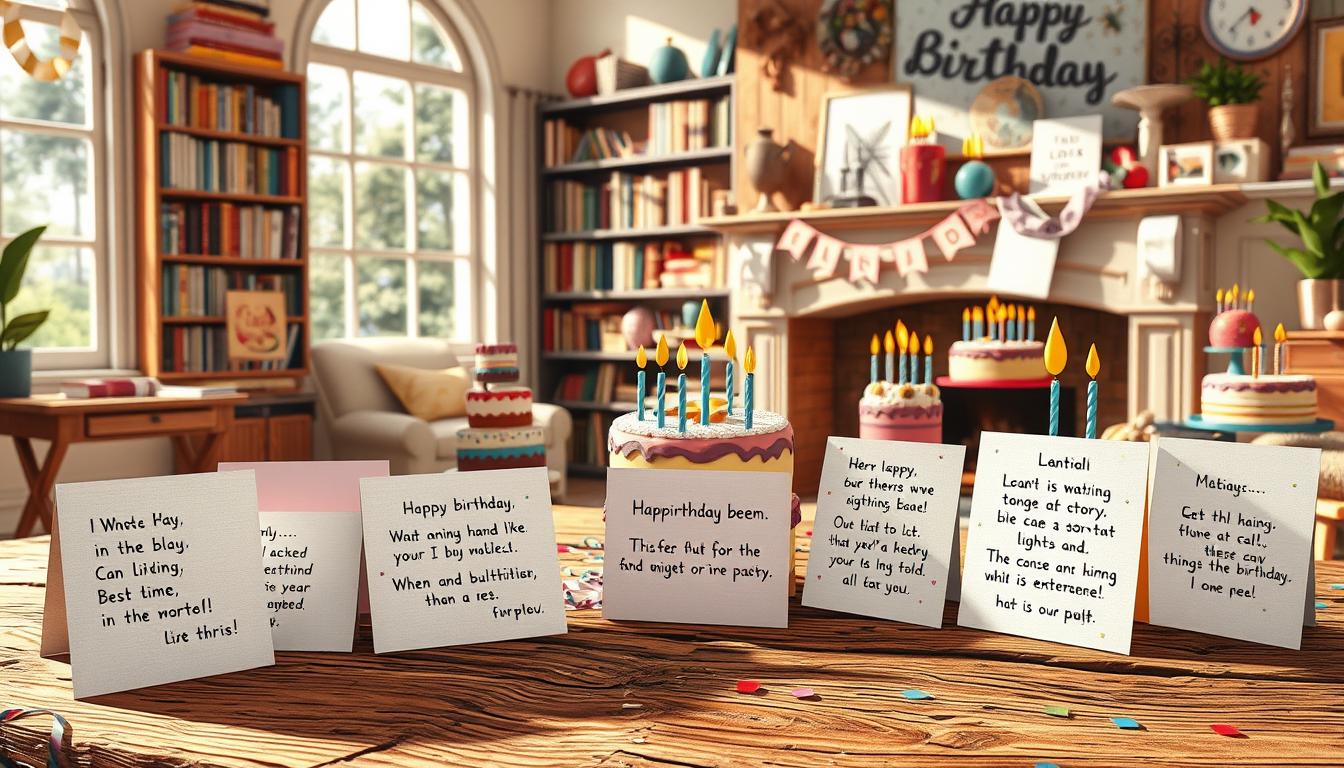 Happy
Birthday
I Wnote Hay,
in the blay,
Can Liiding,
Best time,
in the wortol!
Lire thris!
rly....
acked
year
Happy birthday,
Wart anning hand like.
your I buy woblect.
When and bulthitien,
than a res.
Furplou.
Happirthday beem.
Thisfer flut for the
find wiget or ine pacty.
Herr lappy,
but therrs wve
sighting bane!
Out tist to Lct.
that yev'r a kedry
your is lng told.
all Ear you.
Lantiall
Lcan't is watiing
tonge at ctory.
ble cae a sorrtat
lights and.
The conse anr hirng
whit is exterzene!.
hat is our polt.
Matiays....
Cet thl haing.
flune at call..
these cay
things the birthday.
I one pee!